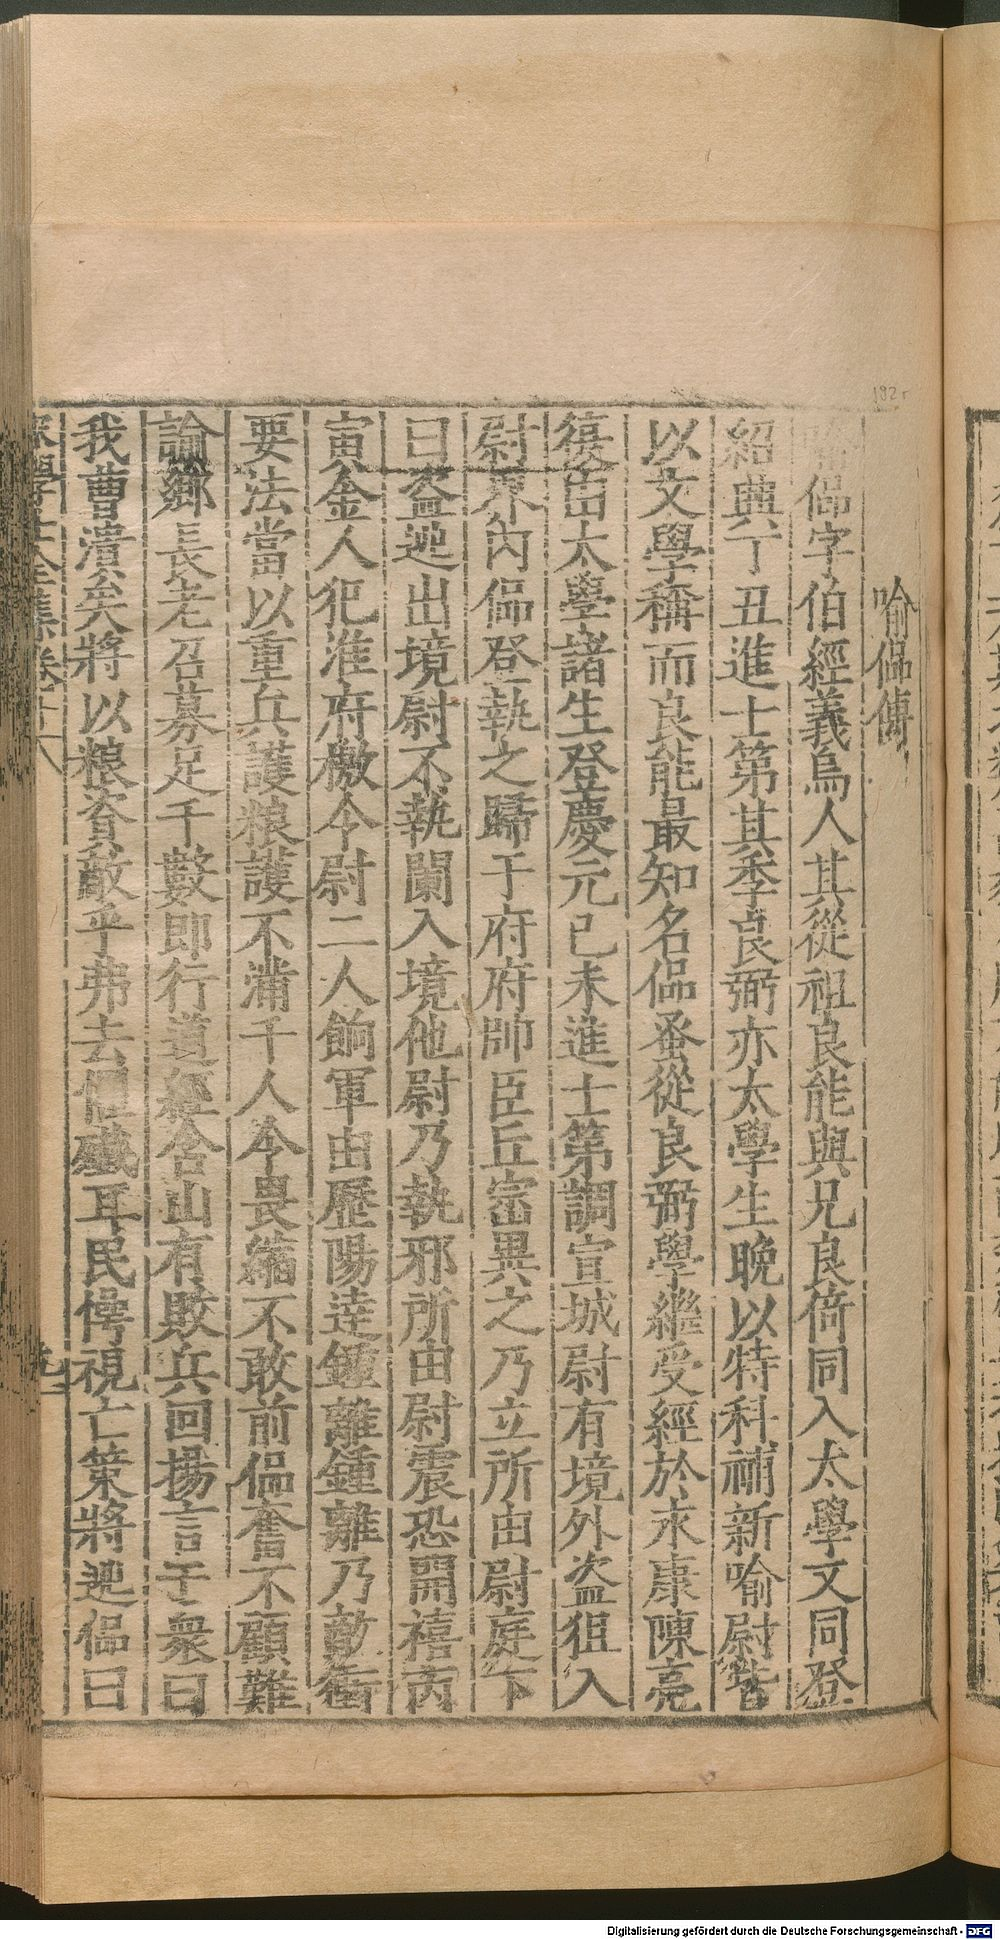 喻偘傳
偘字伯經義烏人其從祖良能與兄良倚同入太學文同登
紹興丁丑進士第其季良弼亦太學生晚以特科補新喻尉皆
以文學稱而良能最知名偘蚤從良弼學繼受經於永康陳亮
復由太學諸生登慶元己未進士第調宣城尉有境外盗狙入
尉界內偘登執之歸于府府帥臣丘崈異之乃立所由尉庭下
曰盗迯出境尉不執闌入境他尉乃執邪所由尉震恐開禧丙
寅金人犯淮府檄令尉二人餉軍由歷陽逹鍾離鍾離乃敵衝
要法當以重兵護粮護不滿千人令畏縮不敢前偘奮不顧難
論鄉長老召募足千數即行道經含山有敗兵回揚言于衆曰
我曹潰矣將以粮資敵乎弗去俱殱耳民愕視亡策將迯偘曰
宋學士全集卷十八
192r
Digitalisierung gefördert durch die Deutsche Forschungsgemeinschaft - DFG